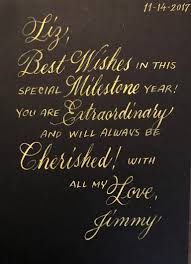 11-14-2017
Liz,
Best Wishes in this
special Milestone year!
you are Extraordinary
and will always be
Cherished! with
all my Love,
Jimmy